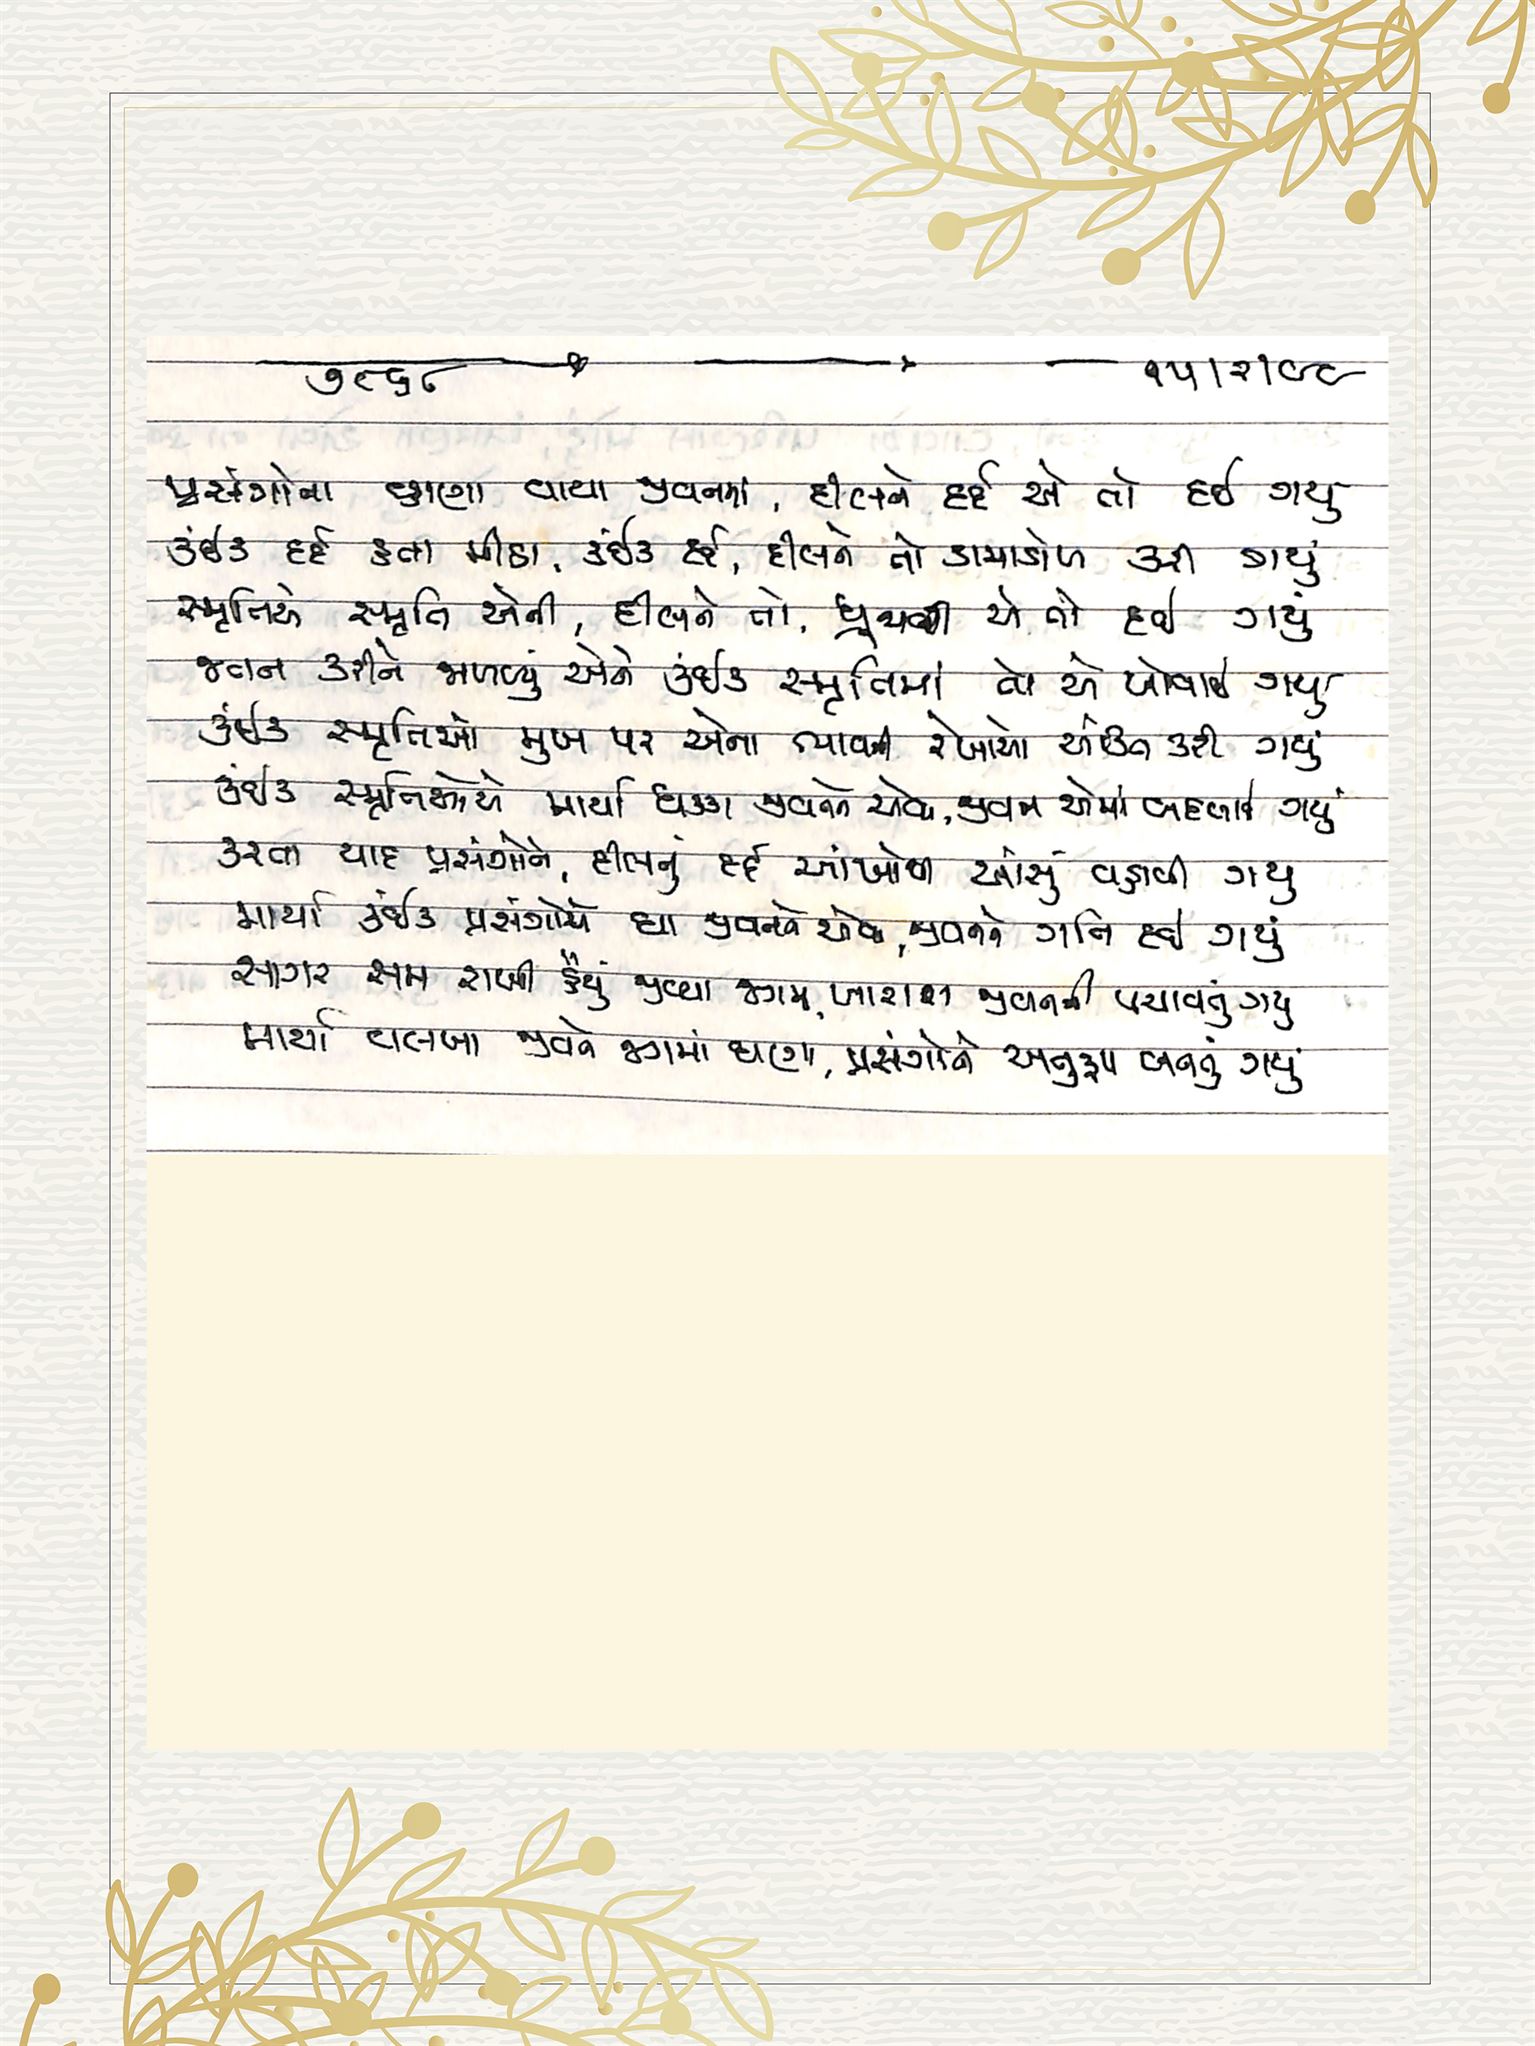 ૭૯૬૮ ૧૫।૨।૯૯
પ્રસંગોના છાણા વાયા જીવનમાં, દીલને દર્દ એ તો દઈ ગયું
કંઈક દર્દ હતા મીઠા, કંઈક દર્દ, દીલને તો ડામાડોળ કરી ગયું
સ્મૃતિએ સ્મૃતિ એની, દીલને તો, ધ્રુજાવી એ તો દઈ ગયું
જતન કરીને જાળવ્યું એને કંઈક સ્મૃતિમાં તો એ ખોવાઈ ગયું
કંઈક સ્મૃતિઓ મુખ પર એના ભાવની રેખાઓ અંકિત કરી ગયું
કંઈક સ્મૃતિઓએ માર્યા ધક્કા જીવનને એવા, જીવન એમાં બદલાઈ ગયું
કરતા યાદ પ્રસંગોને, દીલનું દર્દ આંખોથી આંસું વહાવી ગયું
માર્યા કંઈક પ્રસંગોએ ઘા જીવનને એવા, જીવનને ગતિ દઈ ગયું
સાગર સમ રાખી હૈયું જીવ્યા જગમાં, ખારાશ જીવનની પચાવતું ગયું
માર્યા વલખા જીવને જગમાં ઘણા, પ્રસંગોને અનુરૂપ બનતું ગયું